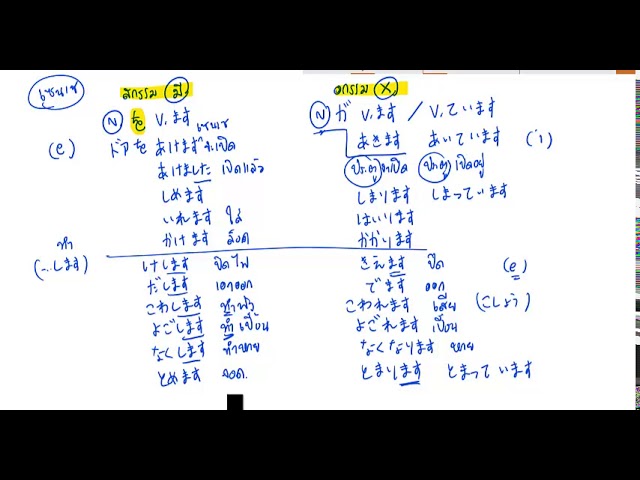 เซนเซ
สกรรม มี
อกรรม X
N を V.ます
N が V.ます / V.ています
(e) ドアを あけます จะเปิด เซนเซ
あきます あいています (i)
あけました เปิดแล้ว
ประตูจะเปิด ประตูเปิดอยู่
しめます
しまります しまっています
いれます ใส่
はいります
かけます ล็อค
かかります
ทำ (...します)
けします ปิดไฟ
きえます ปิด (e)
だします เอาออก
でます ออก
こわします ทำพัง
こわれます เสีย (こしょう)
よごします ทำเปื้อน
よごれます เปื้อน
なくします ทำหาย
なくなります หาย
とめます จอด
とまります とまっています